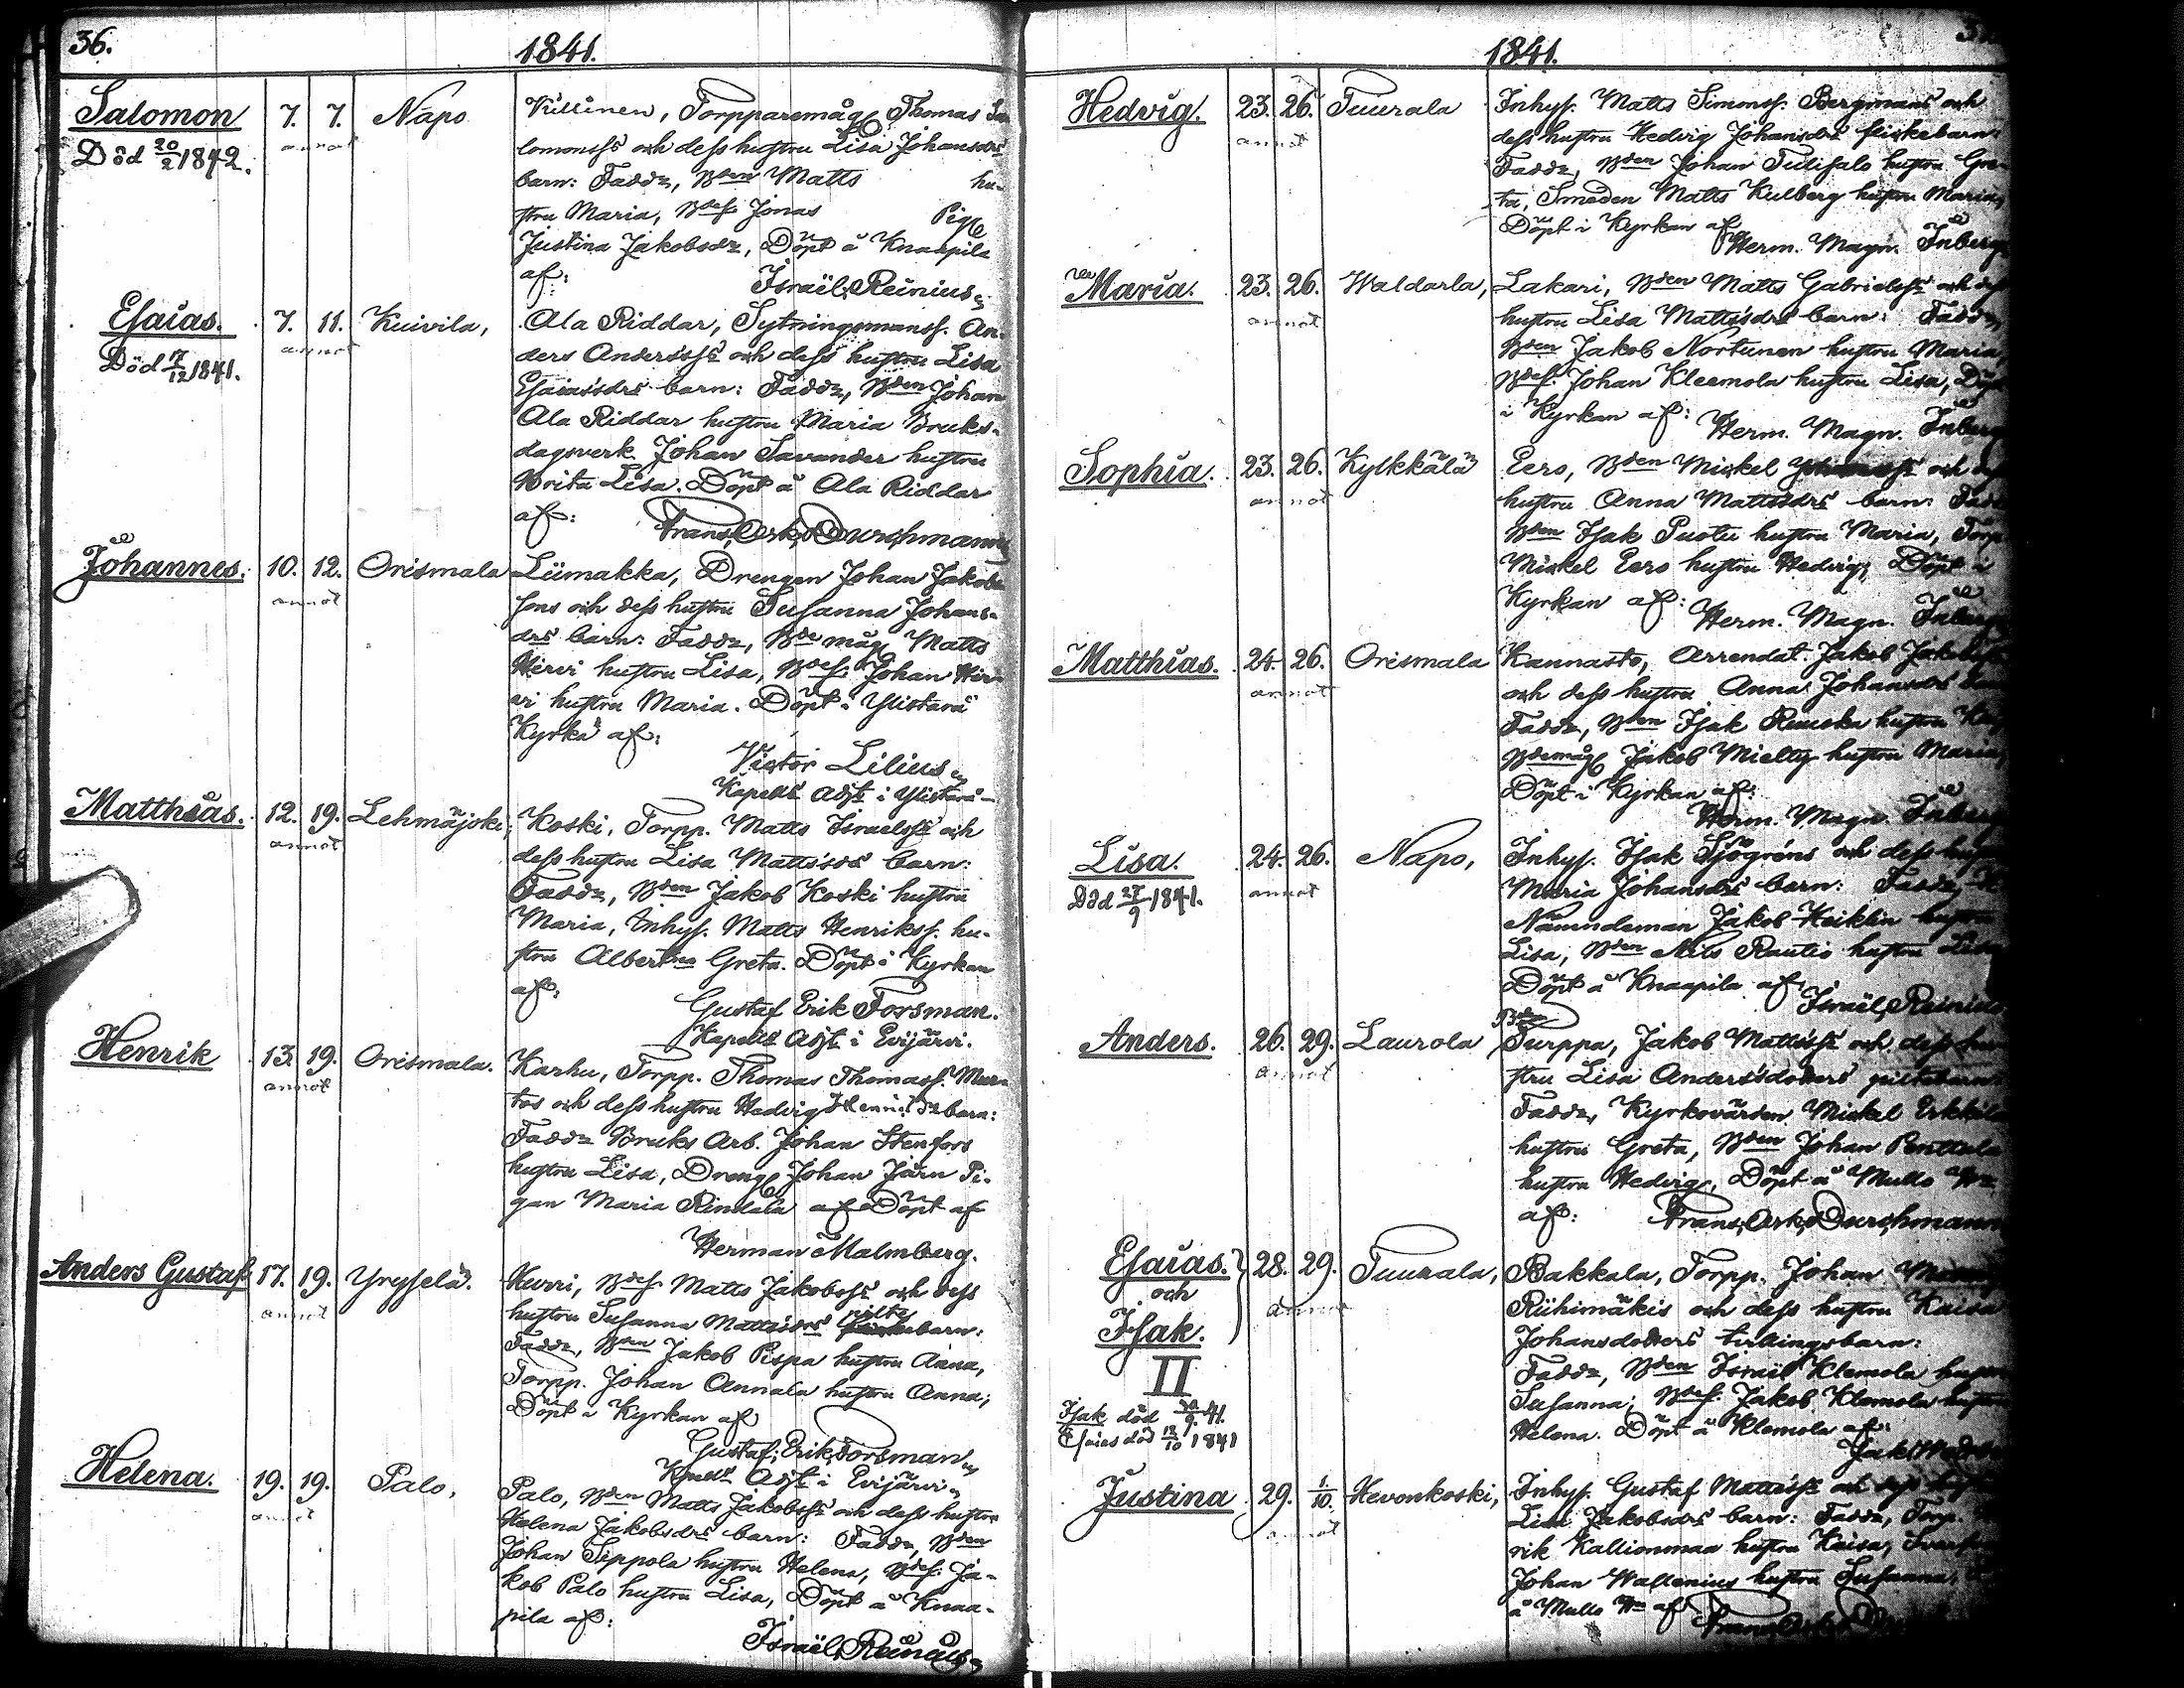 36.
1841.
Salomon 7. 7. Napo Killinen, Torpparemåg Thomas Sa-
annot
Död 20/2 1842. lomonss och dess hustru Lisa Johansdrs
barn: Faddr, Bden Matts hu-
stru Maria, Bdes. Jonas Pig
Justina Jakobsdr, Döpt å Knaapila
af: Israël Reinius
Esaias. 7. 11. Kuivila, Ala Riddar, Sytningsmanss. An-
annot
Död 17/12 1841. ders Anderss och dess hustru Lisa
Esaiasdrs barn: Faddr, Bden Johan
Ala Riddar hustru Maria Bruks-
dagsverk. Johan Savander hustru
Brita Lisa. Döpt å Ala Riddar
af: Frans Osk. Durchmann
Johannes. 10. 12. Orismala Liimakka, Drengen Johan Jakob-
annot
sons och dess hustru Susanna Johans-
drs barn: Faddr, Bde måg Matts
Hirvi hustru Lisa, Bdes. Johan Hir-
vi hustru Maria. Döpt i Ylistarå
Kyrka af:
Victor Lilius
Kapells Adjt i Ylistarå
Matthias. 12. 19. Lehmäjoki, Koski, Torpp. Matts Israelss och
annot
dess hustru Lisa Mattsdrs barn:
Faddr, Bden Jakob Koski hustru
Maria, Inhys. Matts Henrikss. hu-
stru Albertina Greta. Döpt i Kyrkan
af:
Gustaf Erik Forsman.
Kapells Adjt i Evijärvi.
Henrik 13. 19. Orismala. Karhu, Torpp. Thomas Thomass. Mur-
annot
tos och dess hustru Hedvig barn:
Faddr Bruks Arb. Johan Stenfors
hustru Lisa, Dreng Johan Järn Pi-
gan Maria Rindala af Döpt af
Herman Malmberg.
Anders Gustaf 17. 19. Yryselä. Kurri, Bdes. Matts Jakobss och dess
annot
hustru Susanna Mattsdrs pilte barn:
Faddr, Bden Jakob Pispa hustru Anna,
Torpp. Johan Annala hustru Anna;
Döpt i Kyrkan af
Gustaf Erik Forsman
Kapells Adjt i Evijärvi
Helena. 19. 19. Palo, Palo, Bden Matts Jakobss och dess hustru
annot
Helena Jakobsdrs barn: Faddr, Bden
Johan Seppola hustru Helena, Bdes. Ja-
kob Palo hustru Lisa, Döpt å Knaa-
pila af:
Israël Reinius
1841.
Hedvig. 23. 26. Tuurala Inhys. Matts Simonss. Bergmans och
annot
dess hustru Hedvig Johansdrs flickebarn:
Faddr, Bden Johan Tulisalo hustru Gre-
ta, Smeden Matts Kulberg hustru Maria,
Döpt i Kyrkan af
Herm. Magn. Inberg
Maria. 23. 26. Waldarla, Lakari, Bden Matts Gabrielss och dess
annot
hustru Lisa Mattsdrs barn: Faddr,
Bden Jakob Nortunen hustru Maria
Bdes. Johan Kleemola hustru Lisa, Döpt
i Kyrkan af: Herm. Magn. Inberg
Sophia. 23. 26. Kylkkälä Eero, Bden Mickel och
annot
hustru Anna Mattsdrs barn: Fadd
Bden Isak Puotu hustru Maria, Torp
Mickel Eero hustru Hedvig; Döpt i
Kyrkan af: Herm. Magn. Inberg
Matthias. 24. 26. Orismala Kannasto, Arrendat. Jakob
annot
och dess hustru Anna Johansdrs
Faddr, Bden Isak Rauska hustru
Bdemåg Jakob Mielty hustru Maria,
Döpt i Kyrkan af:
Herm. Magn. Inberg
Lisa. 24. 26. Napo, Inhys. Isak Sjögréns och dess
annot
Död 27/9 1841. Maria Johansdrs barn: Faddr,
Nämndeman Jakob Heikkin hustru
Lisa, Bden Nils Rautio hustru Lisa
Döpt å Knaapila af,
Israël Reinius
Bden
Anders. 26. 29. Laurola Turppa, Jakob Mattss och dess hu-
annot
stru Lisa Andersdotters piltebarn
Faddr, Kyrkovärden Mickel Erkkilä
hustru Greta, Bden Johan Penttala
hustru Hedvig, Döpt å Mullo
af: Frans Osk. Durchmann
Esaias. 28. 29. Tuurala, Bakkala, Torpp. Johan
och
annot
Riihimäkis och dess hustru Kaisa
Isak. Johansdotters tvillingsbarn:
II Faddr, Bden Israel Klemola hustru
Susanna; Bdes. Jakob Klemola hustru
Isak död 30/9 41. Helena. Döpt å Klemola af:
Esaias död 13/10 1841
Justina 29. 1/10. Hevonkoski, Inhys. Gustaf Mattss och dess
annot
Lisa Jakobsdrs barn: Faddr, Torp.
rik Kallionmaa hustru Kaisa,
Johan Wallenius hustru Susanna,
å Mullo af